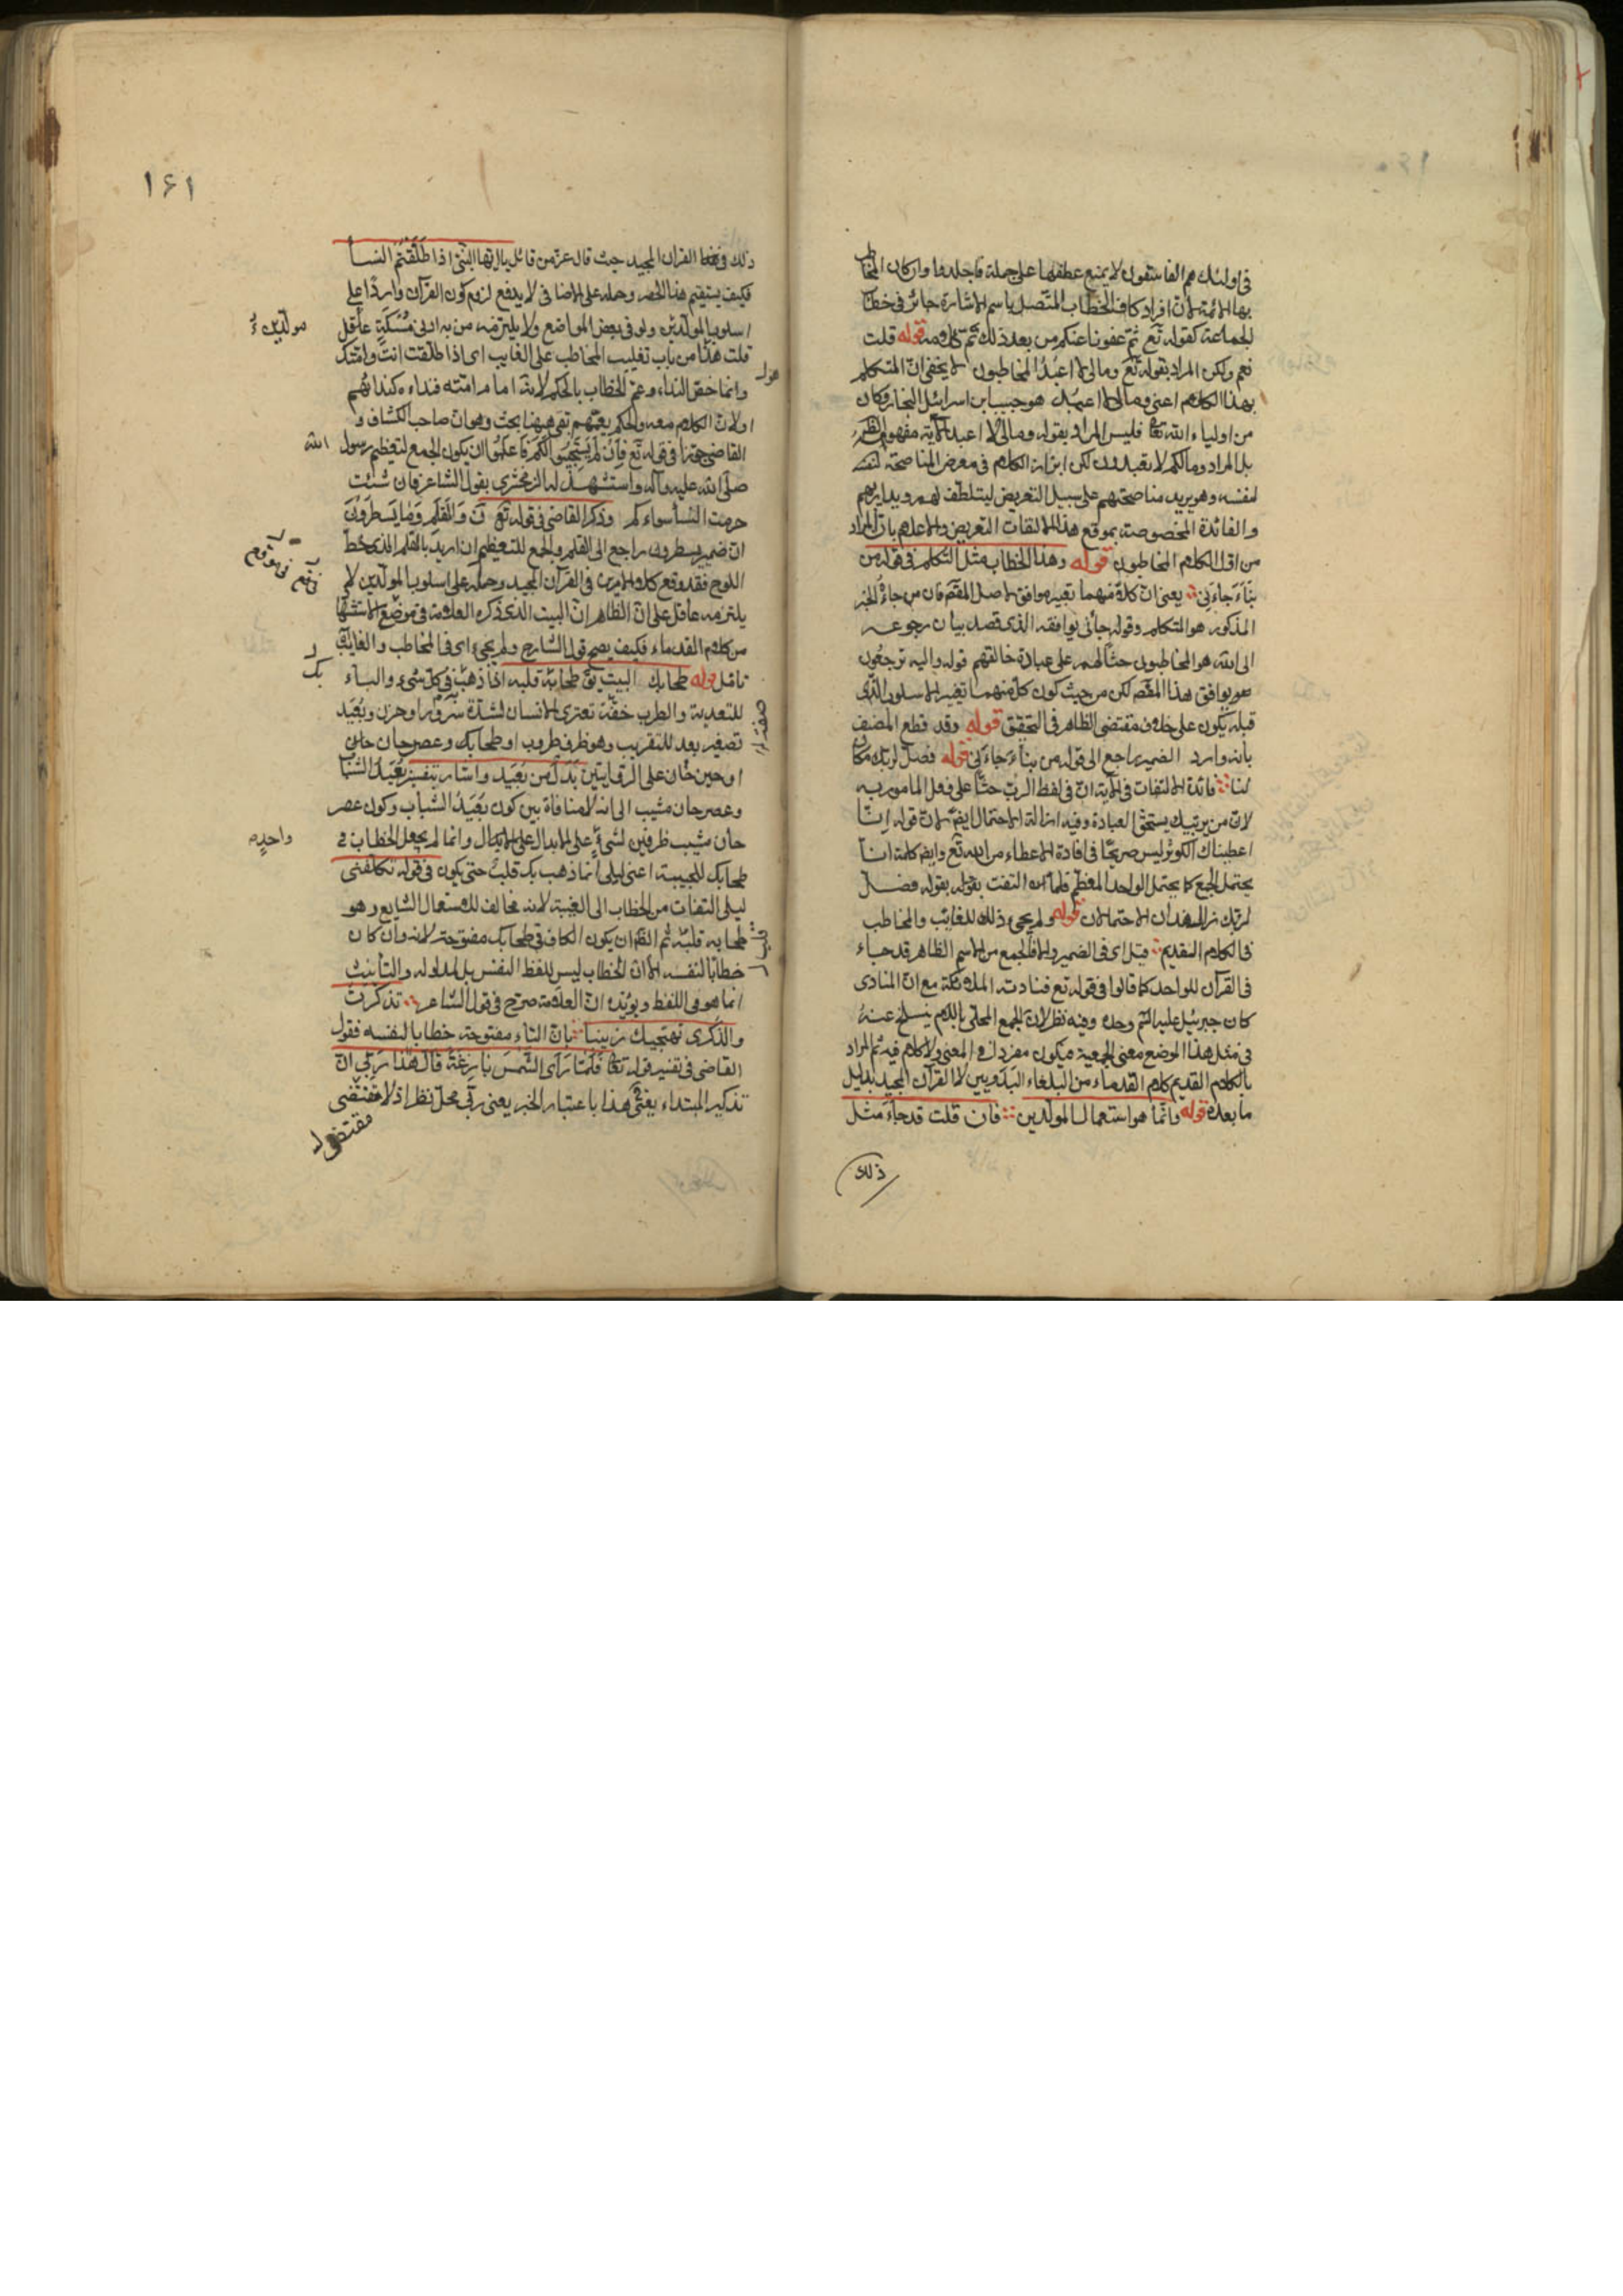 فى اولئك هم الفاسقون لا يمنع عطفها على جملة فاجلدوا وان كان المخاطب
بها الائمة لان افراد كاف الخطاب المتصل باسم الاشارة جائز فى خطاب
الجماعة كقوله تع ثم عفونا عنكم من بعد ذلك ثم كلامه قوله قلت
نعم ولكن المراد بقوله تع ومالى لا اعبد المخاطبون لا يخفى ان المتكلم
بهذا الكلام اعنى ومالى لا اعبد هو حبيب ابن اسرائيل النجار وكان
من اولياء الله تعا فليس المراد بقوله ومالى لا اعبد الآية مفهومه الظ
بل المراد ومالكم لا تعبدون لكن ابرز الكلام فى معرض المناصحة لنفسه
لنفسه وهو يريد مناصحتهم على سبيل التعريض ليتلطف لهم ويداريهم
والفائدة المخصوصة بموقع هذا الالتفات التعريض والاعلام بان المراد
من اول الكلام المخاطبون قوله وهذا الخطاب مثل التكلم فى قوله من
بناء جاءنى يعنى ان كلا منهما تعبير موافق لاصل المقتم فان من جاءه الخبر
المذكور هو المتكلم وقوله جائنى يوافقه الذى قصد بيان رجوعه
الى الله هو المخاطبون حثا لهم على عبادة خالقهم قوله واليه ترجعون
هو يوافق هذا المقصم لكن من حيث كون كل منهما تغيير الاسلوب الذى
قبله يكون على خلاف مقتضى الظاهر فى التحقق قوله وقد قطع المصنف
بانه وارد الضمير راجع الى قوله من بناء جاءنى قوله فصل لربك مكان
لنا فائدة الالتفات فى الآية ان فى لفظ الرب حثا على فعل المامور به
لان من يربيك يستحق العبادة وفيه ازالة الاحتمال ايضا لان قوله انا
اعطيناك الكوثر ليس صريحا فى افادة الاعطاء من الله تع وايضا كلمة انا
يحتمل الجمع كما يحتمل الواحد المعظم فلما التفت بقوله فصل
لربك زال هذان الاحتمالان قوله ولم يجئ ذلك للغائب والمخاطب
فى الكلام القديم قيل اى فى الضمير والا فالجمع من الاسم الظاهر قد جاء
فى القرآن للواحد كما قالوا فى قوله تع فنادته الملائكة مع ان المنادى
كان جبرئيل عليه السم وحده وفيه نظر لان الجمع المحلى باللام ينسلخ عنه
فى مثل هذا الموضع معنى الجمعية فيكون مفردا فى المعنى ولا كلام فيه ثم المراد
بالكلام القديم كلام القدماء من البلغاء البدويين لا القرآن المجيد بدليل
ما بعده قوله وانما هو استعمال المولدين فان قلت قد جاء مثل
ذلك
١٦١
ذلك فى القران المجيد حيث قال عز من قائل يا ايها النبى اذا طلقتم النساء
فكيف يستقيم هذا الحصر وحمله على الاضافى لا يدفع لزوم كون القرآن واردا على
اسلوب المولدين ولو فى بعض المواضع ولا يلتزمه من به ادنى مسكة عاقل
قلت هذا من باب تغليب المخاطب على الغايب اى اذا طلقت انت وامتك
وانما خص النداء وعم الخطاب بالحكم لانه امام امته فنداءه كندائهم
او لان الكلام معه والحكم يعمهم بقى ههنا بحث وهو ان صاحب الكشاف و
القاضى جوزا فى قوله تع فان لم يستجيبوا لكم فاعلموا ان يكون الجمع لتعظيم رسول الله
صلى الله عليه وآله واستشهد له الزمخشرى بقول الشاعر فان شئت
حرمت النساء سواءكم وذكر القاضى فى قوله تع ن والقلم وما يسطرون
ان ضمير يسطرون راجع الى القلم والجمع للتعظيم ان اريد بالقلم الذى خط
اللوح فقد وقع كلا الامرين فى القرآن المجيد وحمله على اسلوب المولدين لا
يلتزمه عاقل على ان الظاهر ان البيت الذى ذكره العلامة فى موضع الاستشهاد
من كلام القدماء فكيف يصح قول الشارح ولم يجئ اى فى المخاطب والغايب
تامل قوله طحابك البيت يق طحابه قلبه اذا ذهب فى كل شئ والباء
للتعدية والطرب خفة تعترى الانسان لشدة سرور او حزن وبعيد
تصغير بعد للتقريب وهو ظرف طروب او طحابك وعصر حان
او حين حان على الروايتين بدل من بعيد واشار بتفسير بعيد الشباب
وعصر حان مشيب الى انه لا منافاة بين كون بعيد الشباب وكون عصر
حان مشيب ظرفين لشئ على الابدال وانما لم يجعل الخطاب فى
طحابك للحبيبة اعنى ليلى انما ذهب بك قلب حتى يكون فى قوله تكلفنى
ليلى التفات من الخطاب الى الغيبة لانه مخالف للاستعمال الشايع وهو
طحا به قلبه ثم الظ ان يكون الكاف فى طحابك مفتوحة لانه وان كان
خطابا لنفسه الا ان الخطاب ليس للفظ النفس بل لمدلوله والتأنيث
انما هو فى اللفظ ويؤيده ان العلامة صرح فى قول الشاعر تذكرت
والذكرى تهيجك زينبا بان التاء مفتوحة خطابا لنفسه فقول
القاضى فى تفسير قوله تعا فلما راى الشمس بازغة قال هذا ربى ان
تذكير المبتداء يعنى هذا باعتبار الخبر يعنى ربى محل نظر اذ لا مقتضى
مولدين
هو
الله
بك
واحده
مقتضى